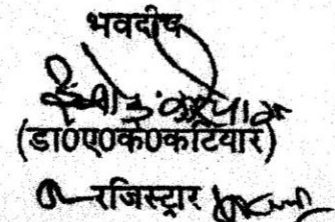 भवदीय
(डा0ए0के0कटियार)
रजिस्ट्रार